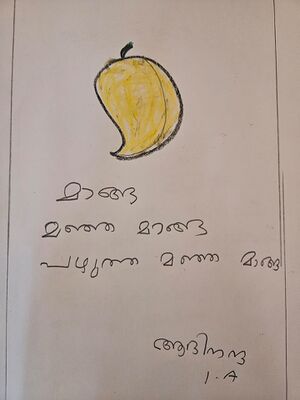 മാങ്ങ
മഞ്ഞ മാങ്ങ
പഴുത്ത മഞ്ഞ മാങ്ങ
ആദിനന്ദ
1. A